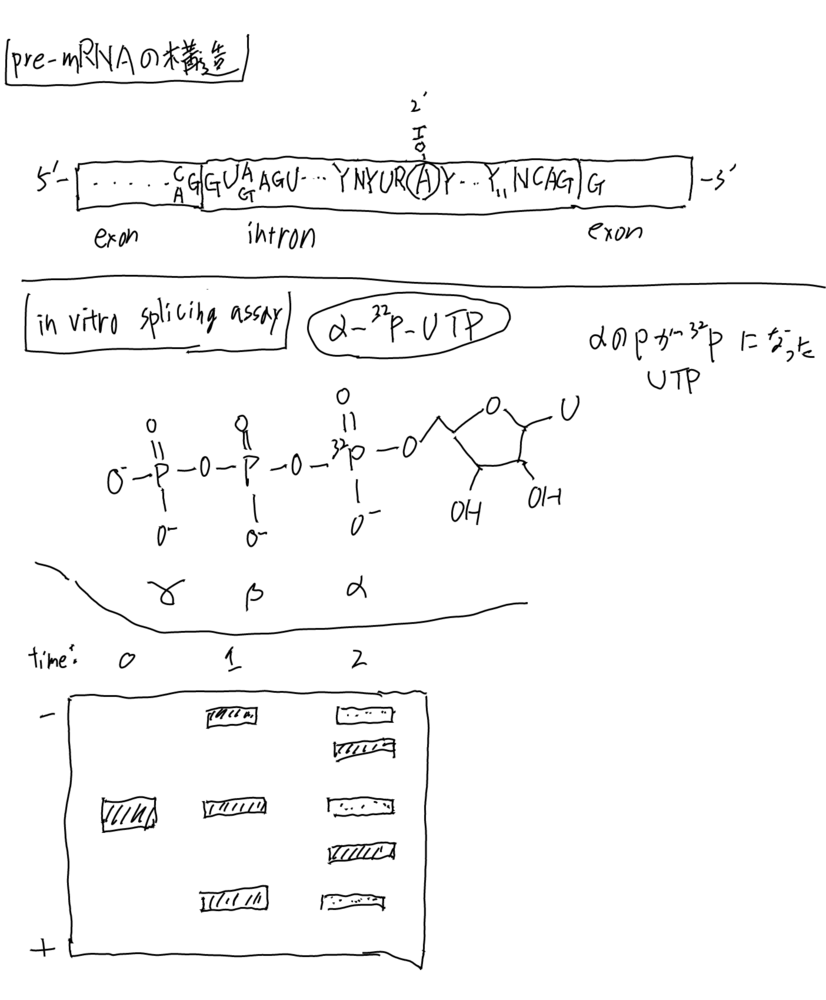 pre-mRNAの構造
2'
HO
5'- ・・・・・CAG GUAGAGU・・・YNYURAY・・・Y11NCAG G -3'
exon intron exon
in vitro splicing assay α-³²P-UTP
αのPが³²Pになった
UTP
O O O O U
O⁻-P-O-P-O-³²P-O
O⁻ O⁻ O⁻ OH OH
γ β α
time: 0 1 2
-
+